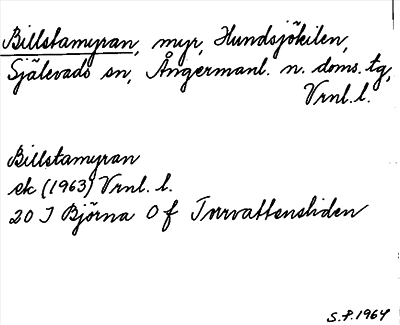 Billstamyran, myr, Hundsjökilen,
Själevads sn, Ångermanl. n. doms. tg,
Vrnl. l.
Billstamyran
ek (1963) Vrnl. l.
20 J Björna 0 f Torrvattensliden
S.P. 1964